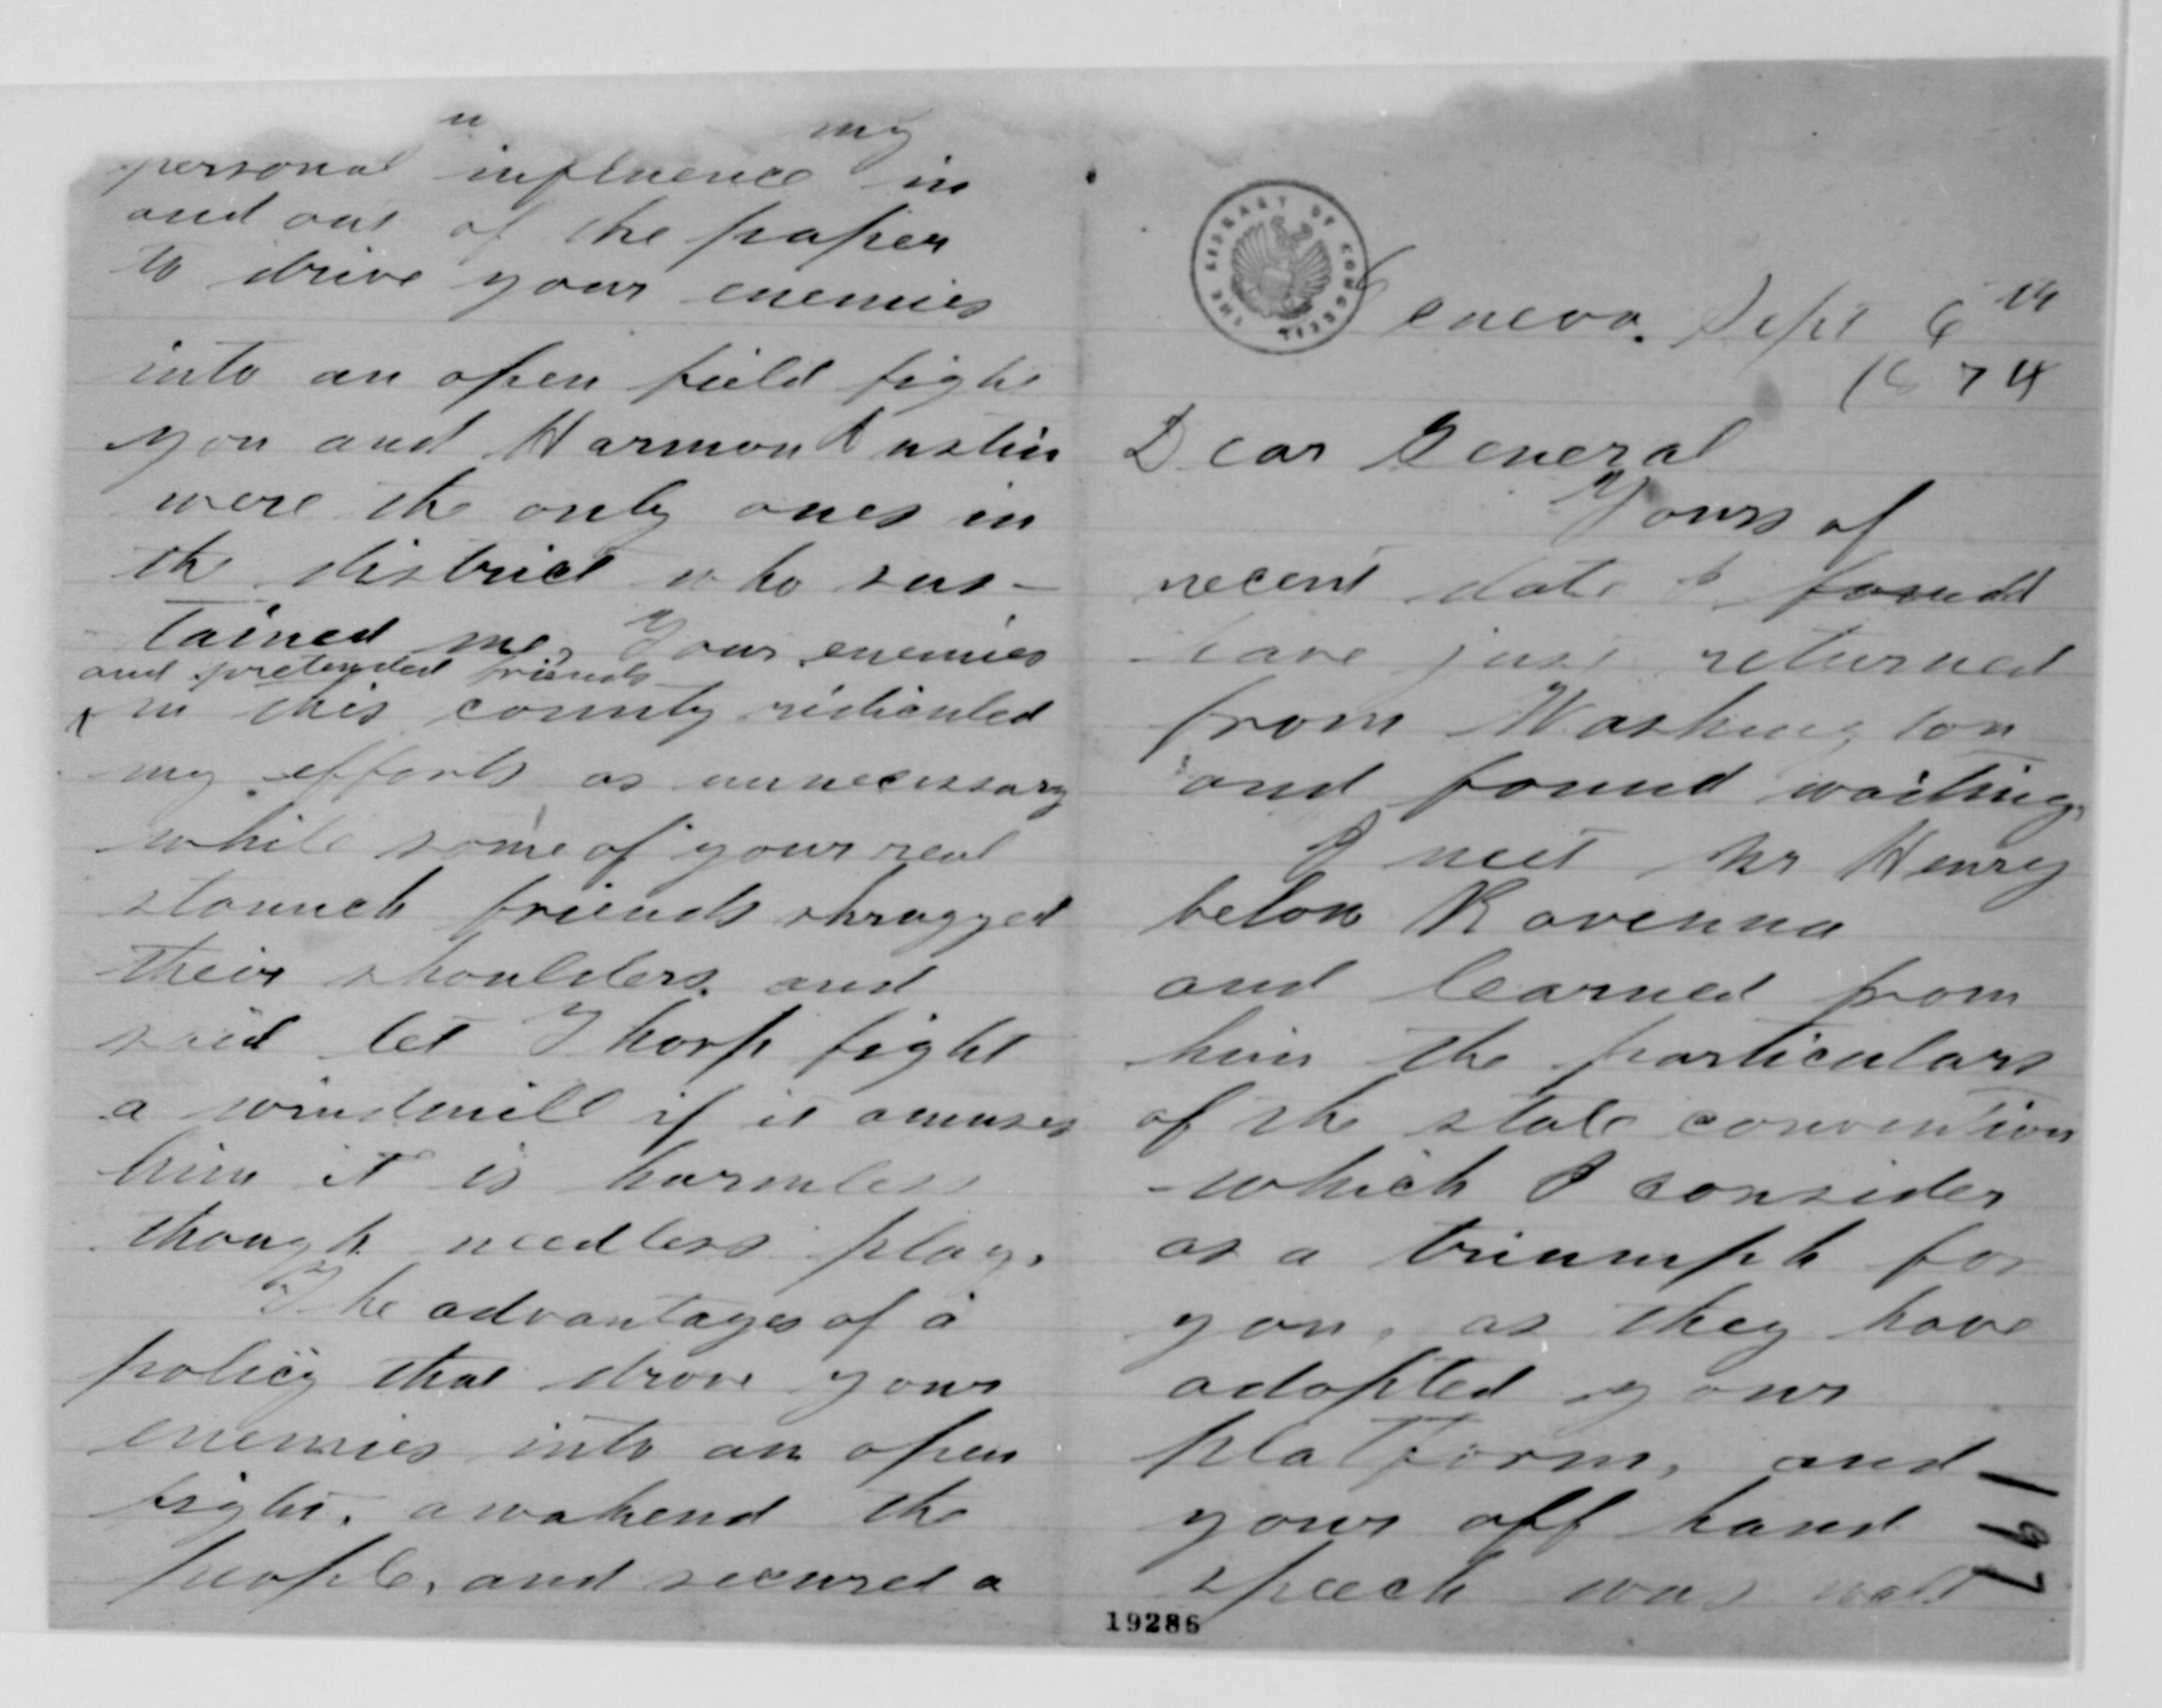 Geneva. Sept 6th
1874
Dear General
Yours of
recent date I found
have just returned
from Washington
and found waiting.
I met Mr Henry
below Ravenna
and learned from
him the particulars
of the state convention
which I consider
as a triumph for
you, as they have
adopted your
platform, and
your off hand
speech was well
197
19286
THE LIBRARY OF CONGRESS
my
personal influence in
and out of the paper
to drive your enemies
into an open field fight
you and Harmon Austin
were the only ones in
the district who sus-
tained me, Your enemies
and pretended friends
in this county ridiculed
my efforts as unnecessary
while some of your real
staunch friends shrugged
their shoulders. and
said let Thorp fight
a windmill if it amuses
him it is harmless
though needless play.
The advantages of a
policy that drove your
enemies into an open
fight. awakend the
people, and secured a